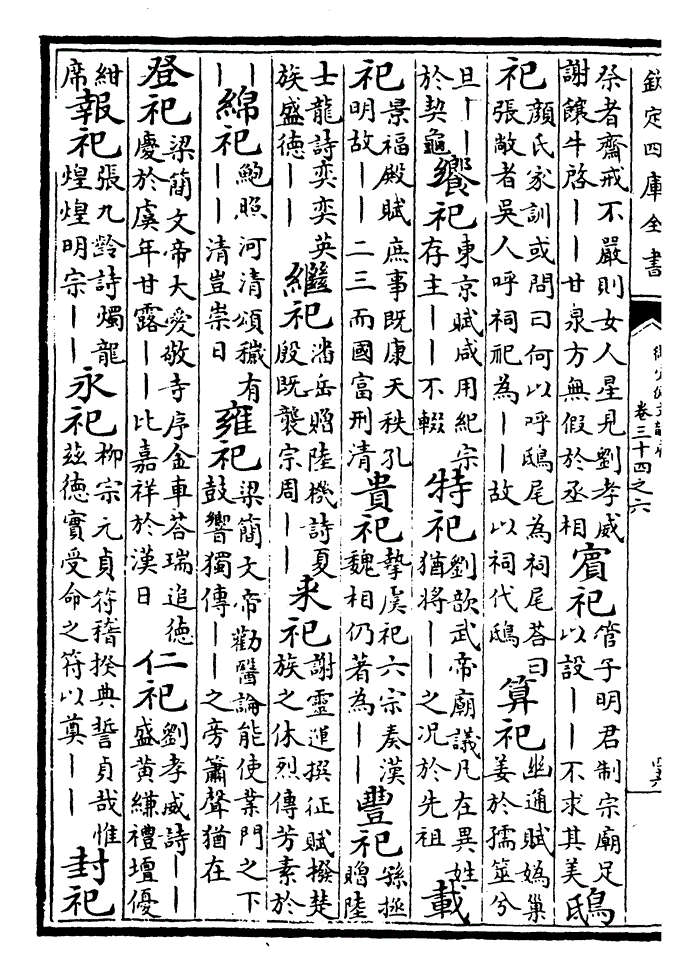 欽定四庫全書
卷三十四之六
祭者齋戒不嚴則女人星見劉孝威
謝饋牛啓――甘泉方無假於丞相
賓祀
管子明君制宗廟足
以設――不求其美
鴟
祀
顔氏家訓或問曰何以呼鴟尾為祠尾荅曰
張敞者吳人呼祠祀為――故以祠代鴟
算祀
幽通賦媯巢
姜於孺筮兮
旦――
於契龜
饗祀
東京賦咸用紀宗
存主――不輟
特祀
劉歆武帝廟議凡在異姓
猶將――之况於先祖
載
祀
景福殿賦庶事既康天秩孔
明故――二三而國富刑清
貴祀
摯虞祀六宗奏漢
魏相仍著為――
豐祀
孫拯
贈陸
士龍詩奕奕英
族盛德――
繼祀
潘岳贈陸機詩夏
殷既襲宗周――
来祀
謝靈運撰征賦撥楚
族之休烈傳芳素於
――
綿祀
鮑照河清頌穢有
清豈崇日
雍祀
梁簡文帝勸醫論能使業門之下
鼓響獨傳――之旁簫聲猶在
登祀
梁簡文帝大愛敬寺序金車荅瑞追德
慶於虞年甘露――比嘉祥於漢日
仁祀
劉孝威詩――
盛黄縑禮壇優
紺
席
報祀
張九齡詩燭龍
煌煌明宗――
永祀
柳宗元貞符稽揆典誓貞哉惟
兹德實受命之符以奠――
封祀